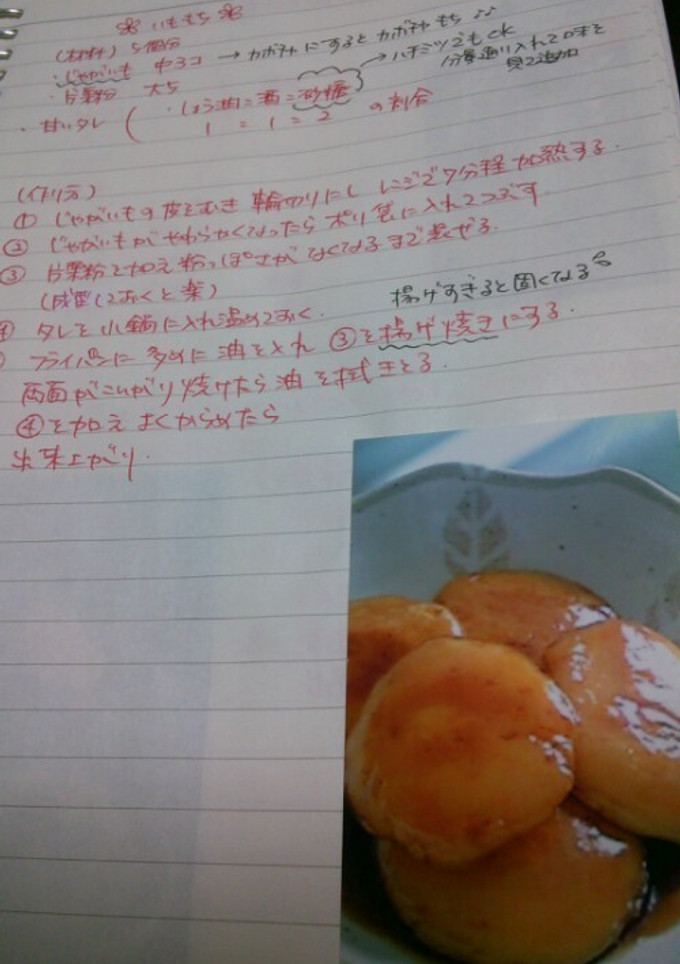 ❀ いももち ❀
(材料) 5個分
・じゃがいも 中3コ → カボチャにするとカボチャもち♪♪
・片栗粉 大5
→ ハチミツでもOK
分量通り入れて味を
見て追加
・甘いタレ ( ・しょう油=酒=砂糖 の割合
1 = 1 = 2
(作り方)
① じゃがいもの皮をむき 輪切りにし レンジで7分程 加熱する.
② じゃがいもがやわらかくなったらポリ袋に入れてつぶす
③ 片栗粉を加え 粉っぽさがなくなるまで混ぜる.
(成型しておくと楽)
④ タレを小鍋に入れ温めておく.
揚げすぎると固くなる
フライパンに多めに油を入れ ③を揚げ焼きにする.
両面がこんがり焼けたら油を拭きとる.
④を加えよくからめたら
出来上がり.